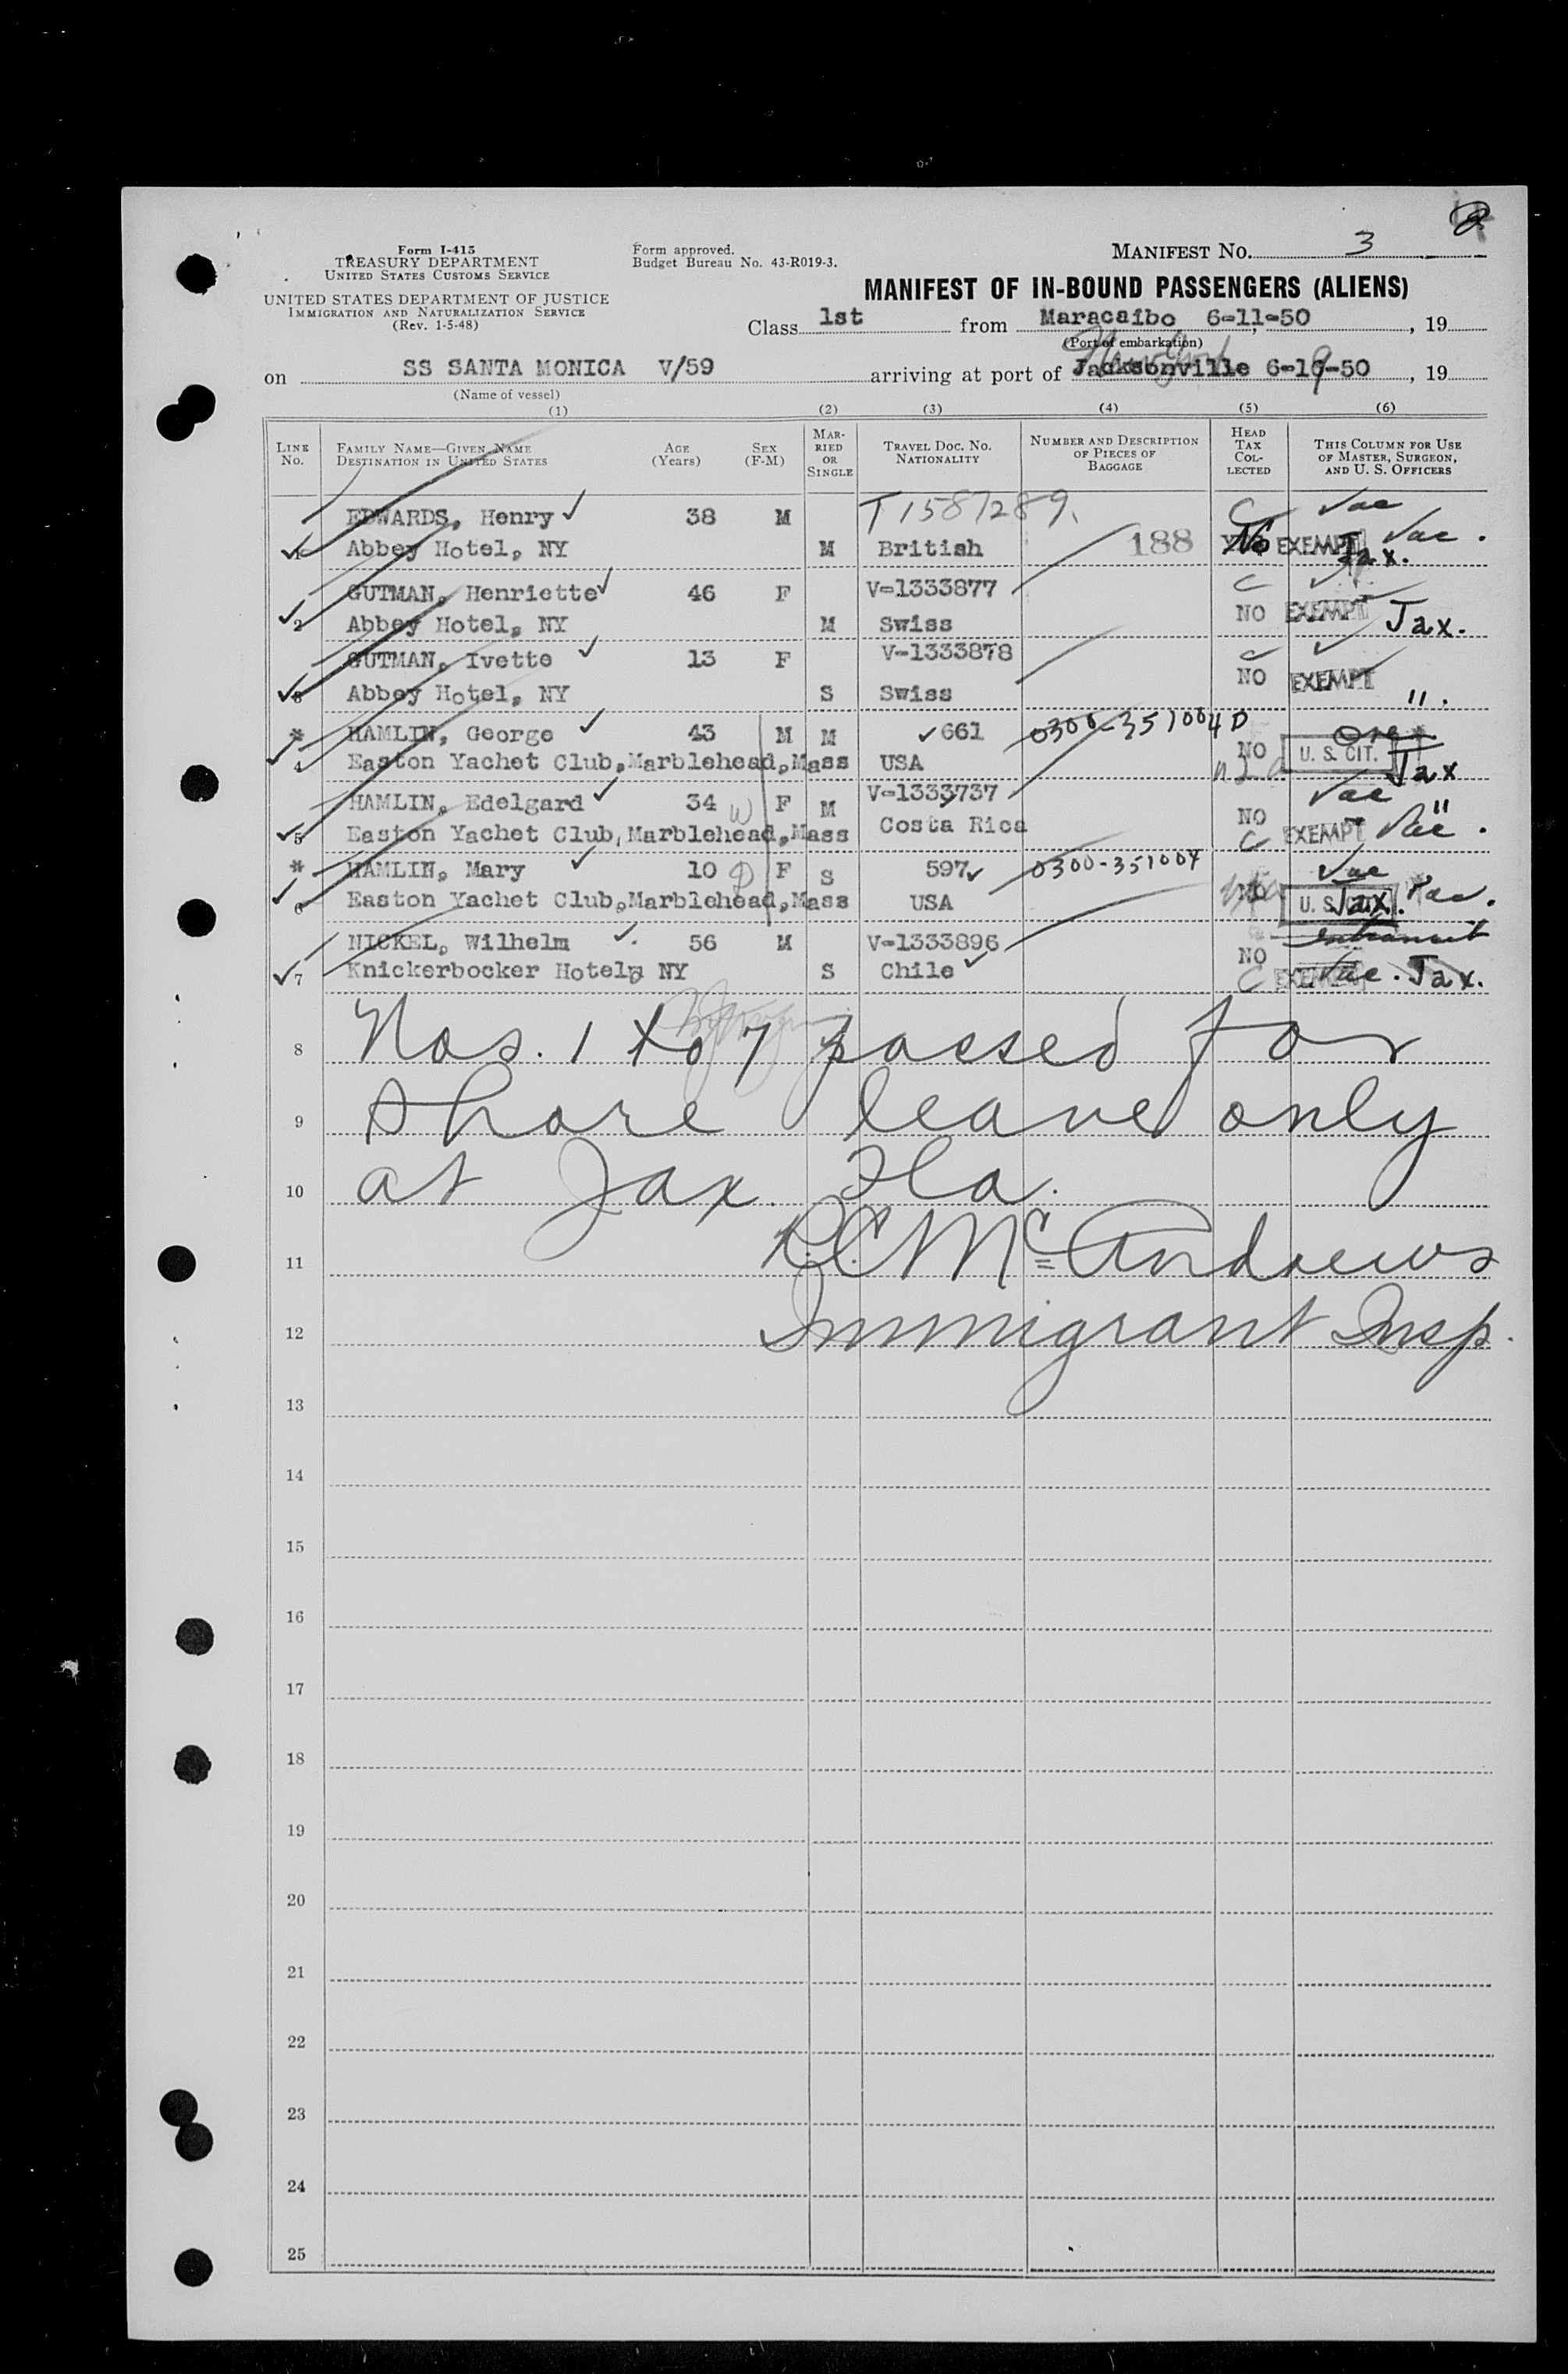 Form I-415
TREASURY DEPARTMENT
UNITED STATES CUSTOMS SERVICE
UNITED STATES DEPARTMENT OF JUSTICE
IMMIGRATION AND NATURALIZATION SERVICE
(Rev. 1-5-48)
Form approved.
Budget Bureau No. 43-R019-3.
MANIFEST NO. 3
MANIFEST OF IN-BOUND PASSENGERS (ALIENS)
Class 1st from Maracaibo 6-11-50, 19
(Port of embarkation)
on SS SANTA MONICA V/59 arriving at port of Jacksonville 6-19-50, 19
New York
(Name of vessel)
(1) (2) (3) (4) (5) (6)
LINE NO. FAMILY NAME—GIVEN NAME DESTINATION IN UNITED STATES AGE (Years) SEX (F-M) MARRIED OR SINGLE TRAVEL DOC. NO. NATIONALITY NUMBER AND DESCRIPTION OF PIECES OF BAGGAGE HEAD TAX COLLECTED THIS COLUMN FOR USE OF MASTER, SURGEON, AND U. S. OFFICERS
EDWARDS, Henry 38 M T1587289. C Vac
1 Abbey Hotel, NY M British 188 No EXEMPT Vac. Jax.
GUTMAN, Henriette 46 F V-1333877 C
2 Abbey Hotel, NY M Swiss NO EXEMPT Jax.
GUTMAN, Ivette 13 F V-1333878 C
3 Abbey Hotel, NY S Swiss NO EXEMPT ".
* HAMLIN, George 43 M M 661 0300-351004 D
4 Easton Yachet Club, Marblehead, Mass USA NO U. S. CIT. Jax
HAMLIN, Edelgard 34 W F M V-1333737 Vac
5 Easton Yachet Club, Marblehead, Mass Costa Rica NO C EXEMPT Vac ".
* HAMLIN, Mary 10 D F S 597 0300-351004 Vac
6 Easton Yachet Club, Marblehead, Mass USA NO U. S. CIT. Jax. Vac.
NICKEL, Wilhelm 56 M V-1333896 intransit
7 Knickerbocker Hotel, NY S Chile NO C EXEMPT Vac. Jax.
8 Nos. 1 to 7 passed for
9 shore leave only
10 at Jax. Fla.
11 R.C. McAndrews
12 Immigrant Insp.
13
14
15
16
17
18
19
20
21
22
23
24
25